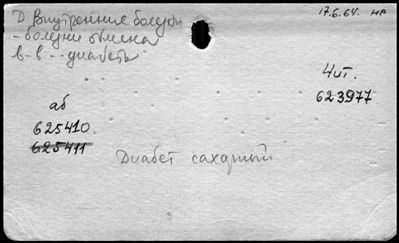 Д Внутренние болезни
17.6.64. НР
- болезни обмена
в-в -- диабеты
Чит.
623977
аб
625410
625411
Диабет сахарный